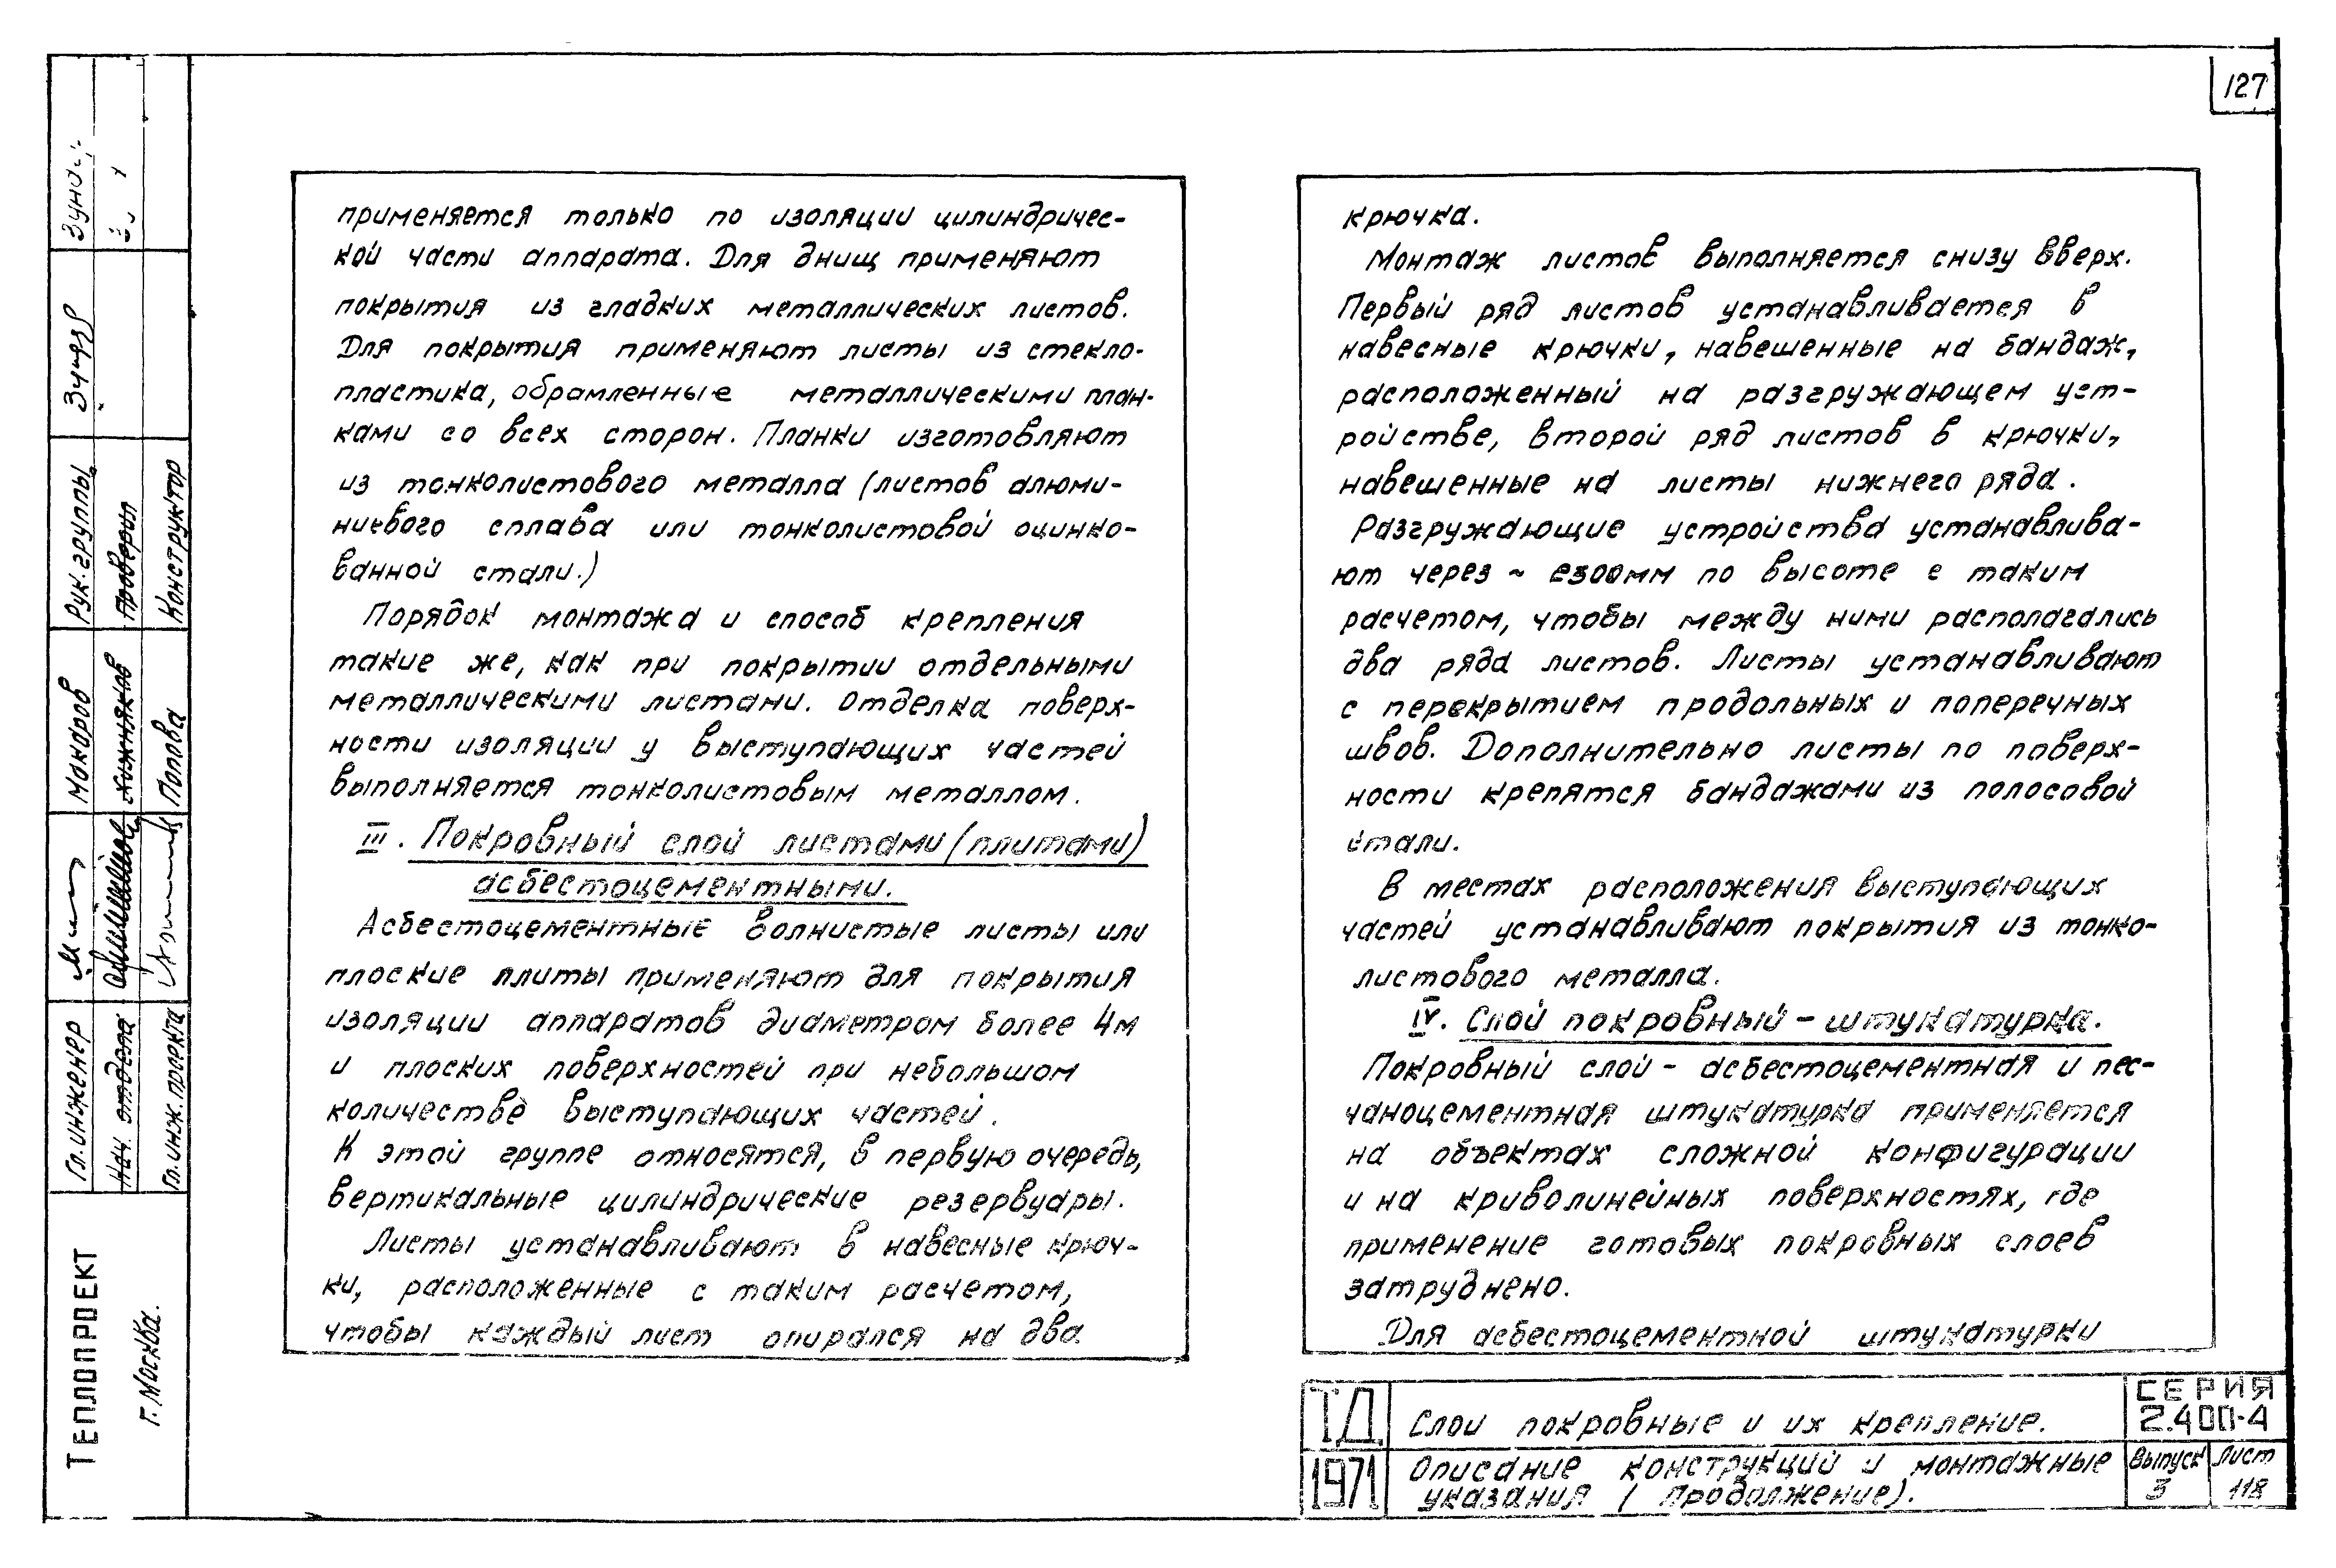 127
применяется только по изоляции цилиндричес-
кой части аппарата. Для днищ применяют
покрытия из гладких металлических листов.
Для покрытия применяют листы из стекло-
пластика, обрамленные металлическими план-
ками со всех сторон. Планки изготовляют
из тонколистового металла (листов алюми-
ниевого сплава или тонколистовой оцинко-
ванной стали.)
Порядок монтажа и способ крепления
такие же, как при покрытии отдельными
металлическими листами. Отделка поверх-
ности изоляции у выступающих частей
выполняется тонколистовым металлом.
III. Покровный слой листами (плитами)
асбестоцементными.
Асбестоцементные волнистые листы или
плоские плиты применяют для покрытия
изоляции аппаратов диаметром более 4м
и плоских поверхностей при небольшом
количестве выступающих частей.
К этой группе относятся, в первую очередь,
вертикальные цилиндрические резервуары.
Листы устанавливают в навесные крюч-
ки, расположенные с таким расчетом,
чтобы каждый лист опирался на два
крючка.
Монтаж листов выполняется снизу вверх.
Первый ряд листов устанавливается в
навесные крючки, навешенные на бандаж,
расположенный на разгружающем уст-
ройстве, второй ряд листов в крючки,
навешенные на листы нижнего ряда.
Разгружающие устройства устанавлива-
ют через ~ 2300мм по высоте с таким
расчетом, чтобы между ними располагались
два ряда листов. Листы устанавливают
с перекрытием продольных и поперечных
швов. Дополнительно листы по поверх-
ности крепятся бандажами из полосовой
стали.
В местах расположения выступающих
частей устанавливают покрытия из тонко-
листового металла.
IV. Слой покровный - штукатурка.
Покровный слой - асбестоцементная и пес-
чаноцементная штукатурка применяется
на объектах сложной конфигурации
и на криволинейных поверхностях, где
применение готовых покровных слоев
затруднено.
Для асбестоцементной штукатурки
ТД
1971
Слои покровные и их крепление.
Описание конструкций и монтажные
указания (продолжение).
СЕРИЯ
2.400-4
Выпуск Лист
3 118
Рук. группы
Проверил
Конструктор
Макаров
Кожняков
Попова
Гл. инженер
Нач. отдела
Гл. инж. проекта
ТЕПЛОПРОЕКТ
г. Москва.